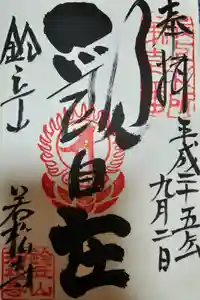 奉拝
平成二十五年
九月二日
観自在
鈴立山
若松寺